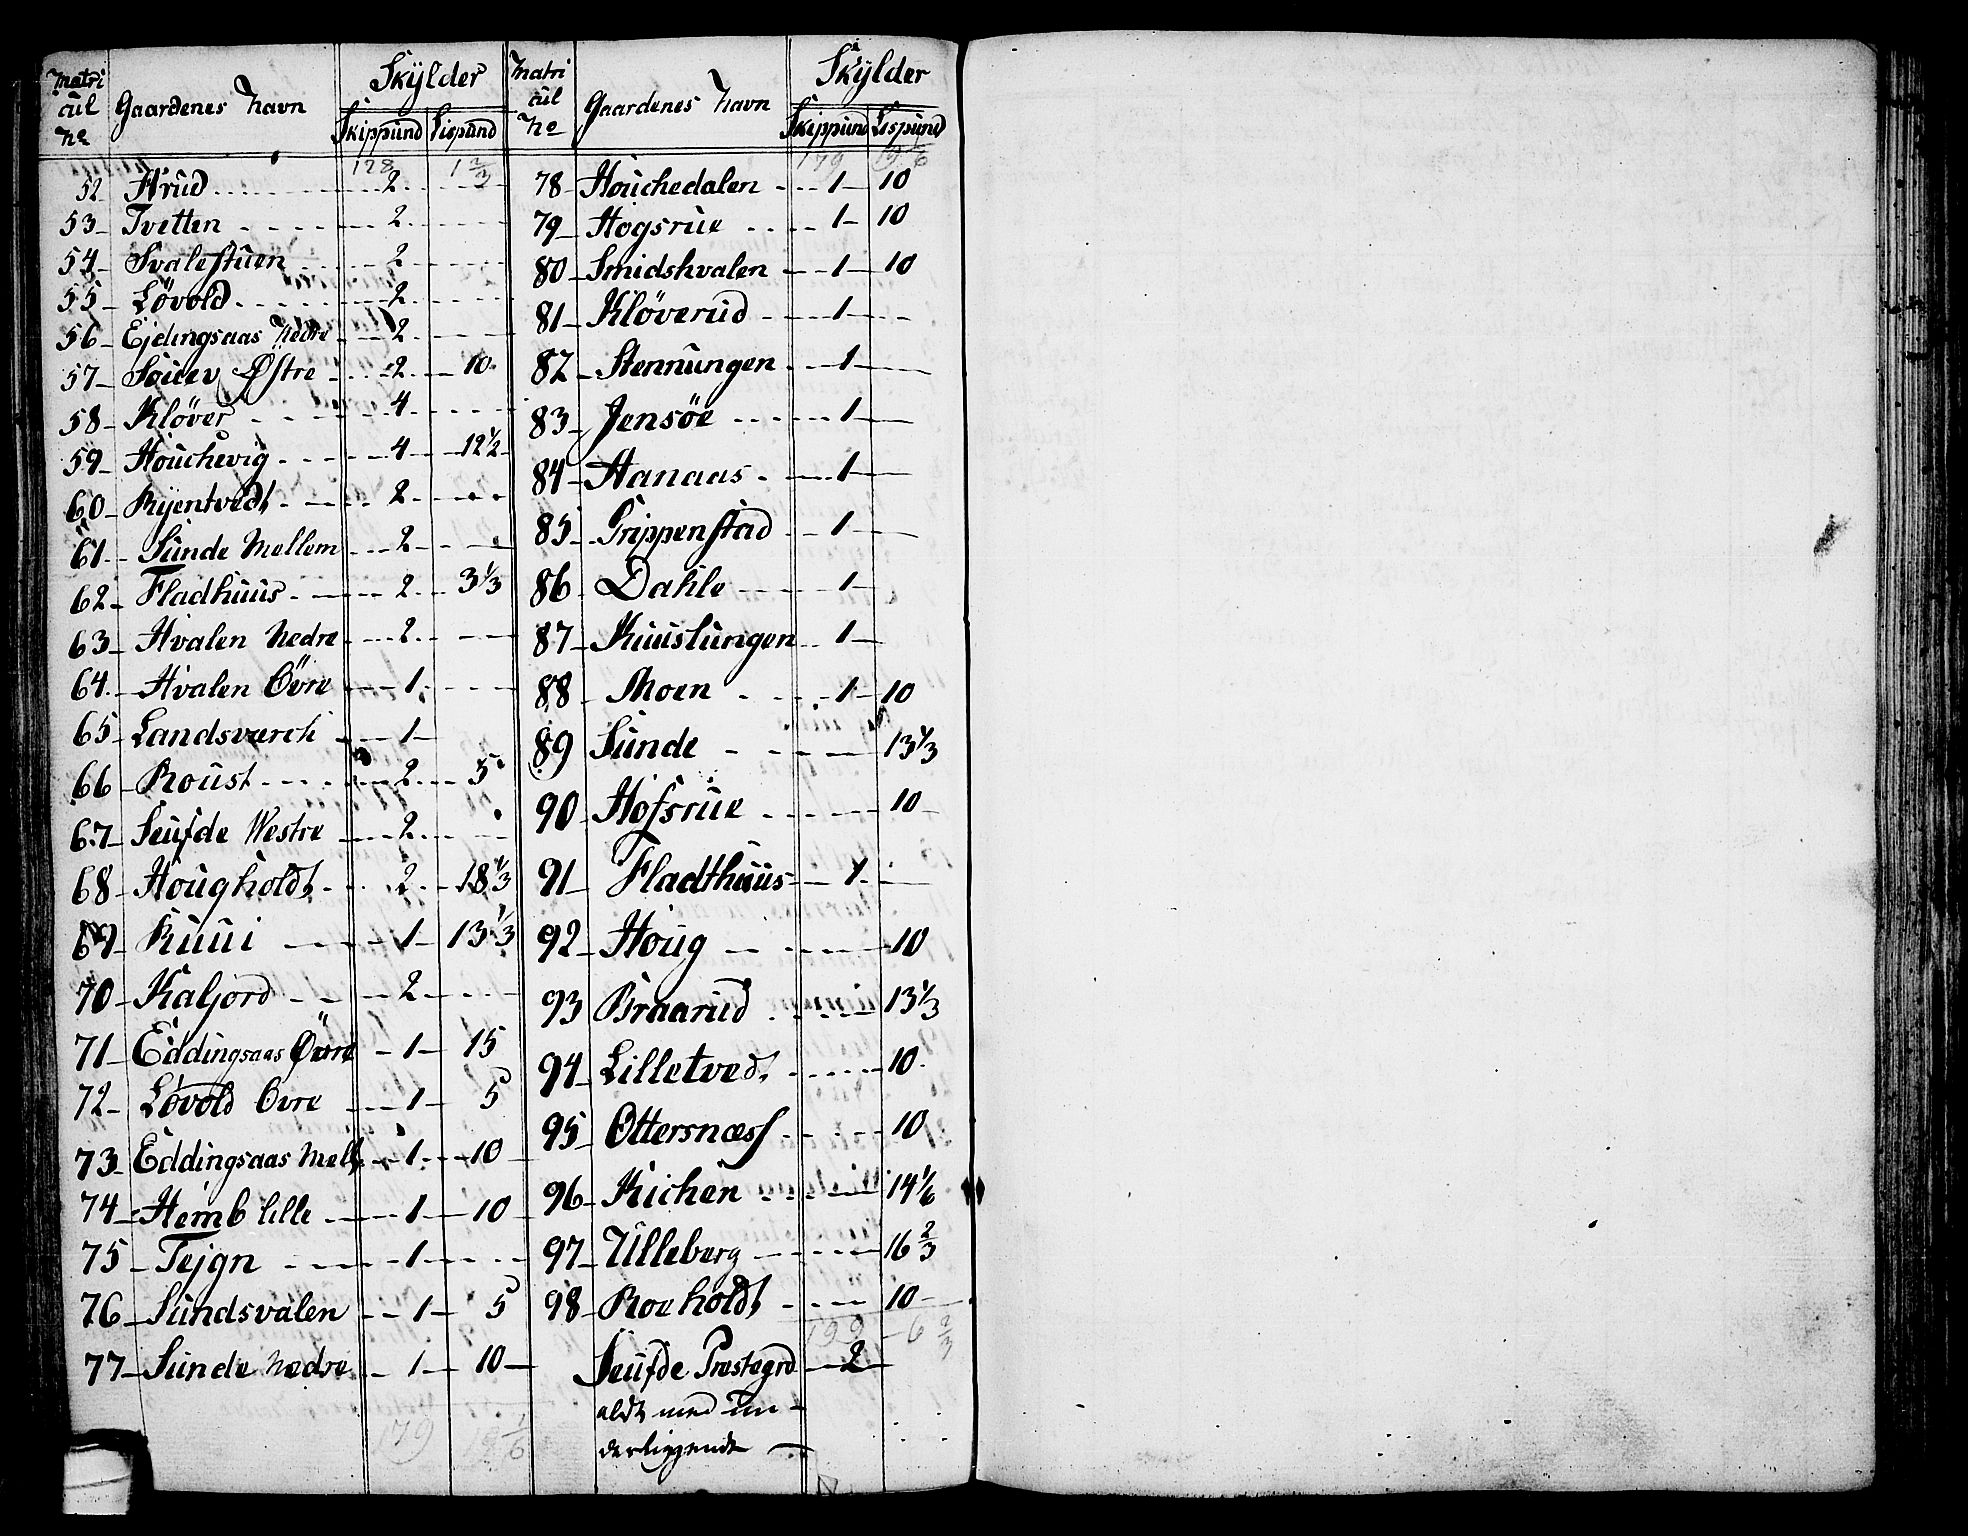 Matri cul No Gaardenes Navn Skylder Skippund Lispund
128 1 2/3
52 Aarud 2
53 Tvetten 2
54 Svalestuen 2
55 Løvold 2
56 Ejdingsaas Nedre 2
57 Søuev Østre 2 10
58 Kløver 4
59 Houchevig 4 12 1/2
60 Ryentvedt 2
61 Sunde Mellem 2
62 Fladhuus 2 3 1/3
63 Hvalen Nedre 2
64 Hvalen Övre 1
65 Landsværch 1
66 Roust 2 5
67 Seufde Westre 2
68 Hougholdt 2 18 1/3
69 Ruui 1 13 1/3
70 Kaljord 2
71 Eddingsaas Övre 1 15
72 Løvold Ovre 1 5
73 Eddingsaas Mell 1 10
74 Hemb lille 1 10
75 Tejgn 1
76 Sundsvalen 1 5
77 Sunde Nedre 1 10
179 12 1/6
Matri cul No Gaardenes Navn Skylder Skippund Lispund
179 12 1/6
78 Houchedalen 1 10
79 Hogsrue 1 10
80 Smidshvalen 1 10
81 Kløverud 1
82 Stennungen 1
83 Jensøe 1
84 Hanaas 1
85 Grippenstad 1
86 Dahle 1
87 Kuuslungen 1
88 Moen 1 10
89 Sunde 13 1/3
90 Hofsrue 10
91 Fladthuus 1
92 Houg 10
93 Braarud 13 1/3
94 Lilletvedt 10
95 Ottersnæss 10
96 Kichen 14 1/6
97 Ulleberg 16 2/3
98 Roeholdt 10
199 6 2/3
Seufde Prestegrd 2
aldt med un-
derliggende